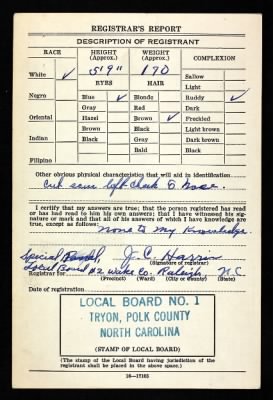 REGISTRAR'S REPORT
DESCRIPTION OF REGISTRANT
RACE HEIGHT (Approx.) WEIGHT (Approx.) COMPLEXION
5'9" 170 Sallow
White ✓ EYES HAIR Light
Negro Blue ✓ Blonde Ruddy ✓
Gray Red Dark
Oriental Hazel Brown ✓ Freckled
Brown Black Light brown
Indian Black Gray Dark brown
Bald Black
Filipino
Other obvious physical characteristics that will aid in identification
Cut scar left cheek to nose.
I certify that my answers are true; that the person registered has read or has had read to him his own answers; that I have witnessed his signature or mark and that all of his answers of which I have knowledge are true, except as follows:
None to my Knowledge
Special J. C.
(Signature of registrar)
Registrar for Local Board #2 Wake Co. Raleigh, N C
(Precinct) (Ward) (City or county) (State)
Date of registration
LOCAL BOARD NO. 1
TRYON, POLK COUNTY
NORTH CAROLINA
(STAMP OF LOCAL BOARD)
(The stamp of the Local Board having jurisdiction of the
registrant shall be placed in the above space.)
16—17105